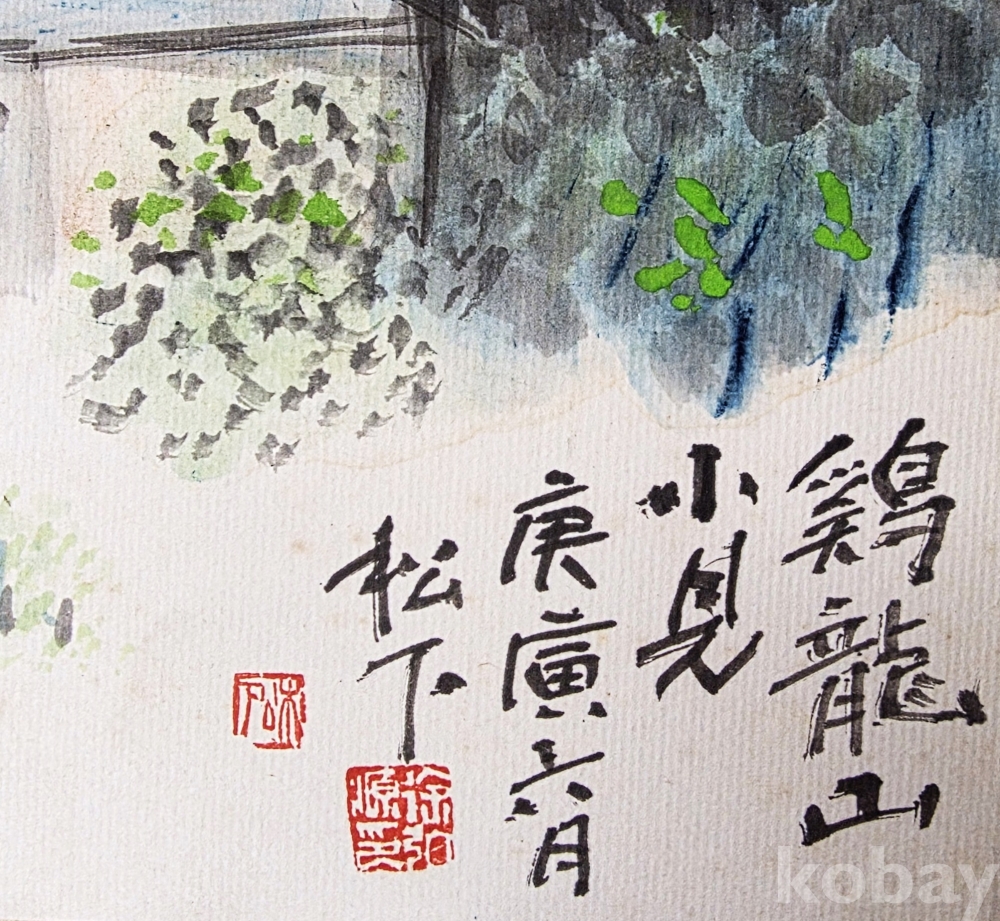 鷄龍山
小見
庚寅六月
松下
kobay